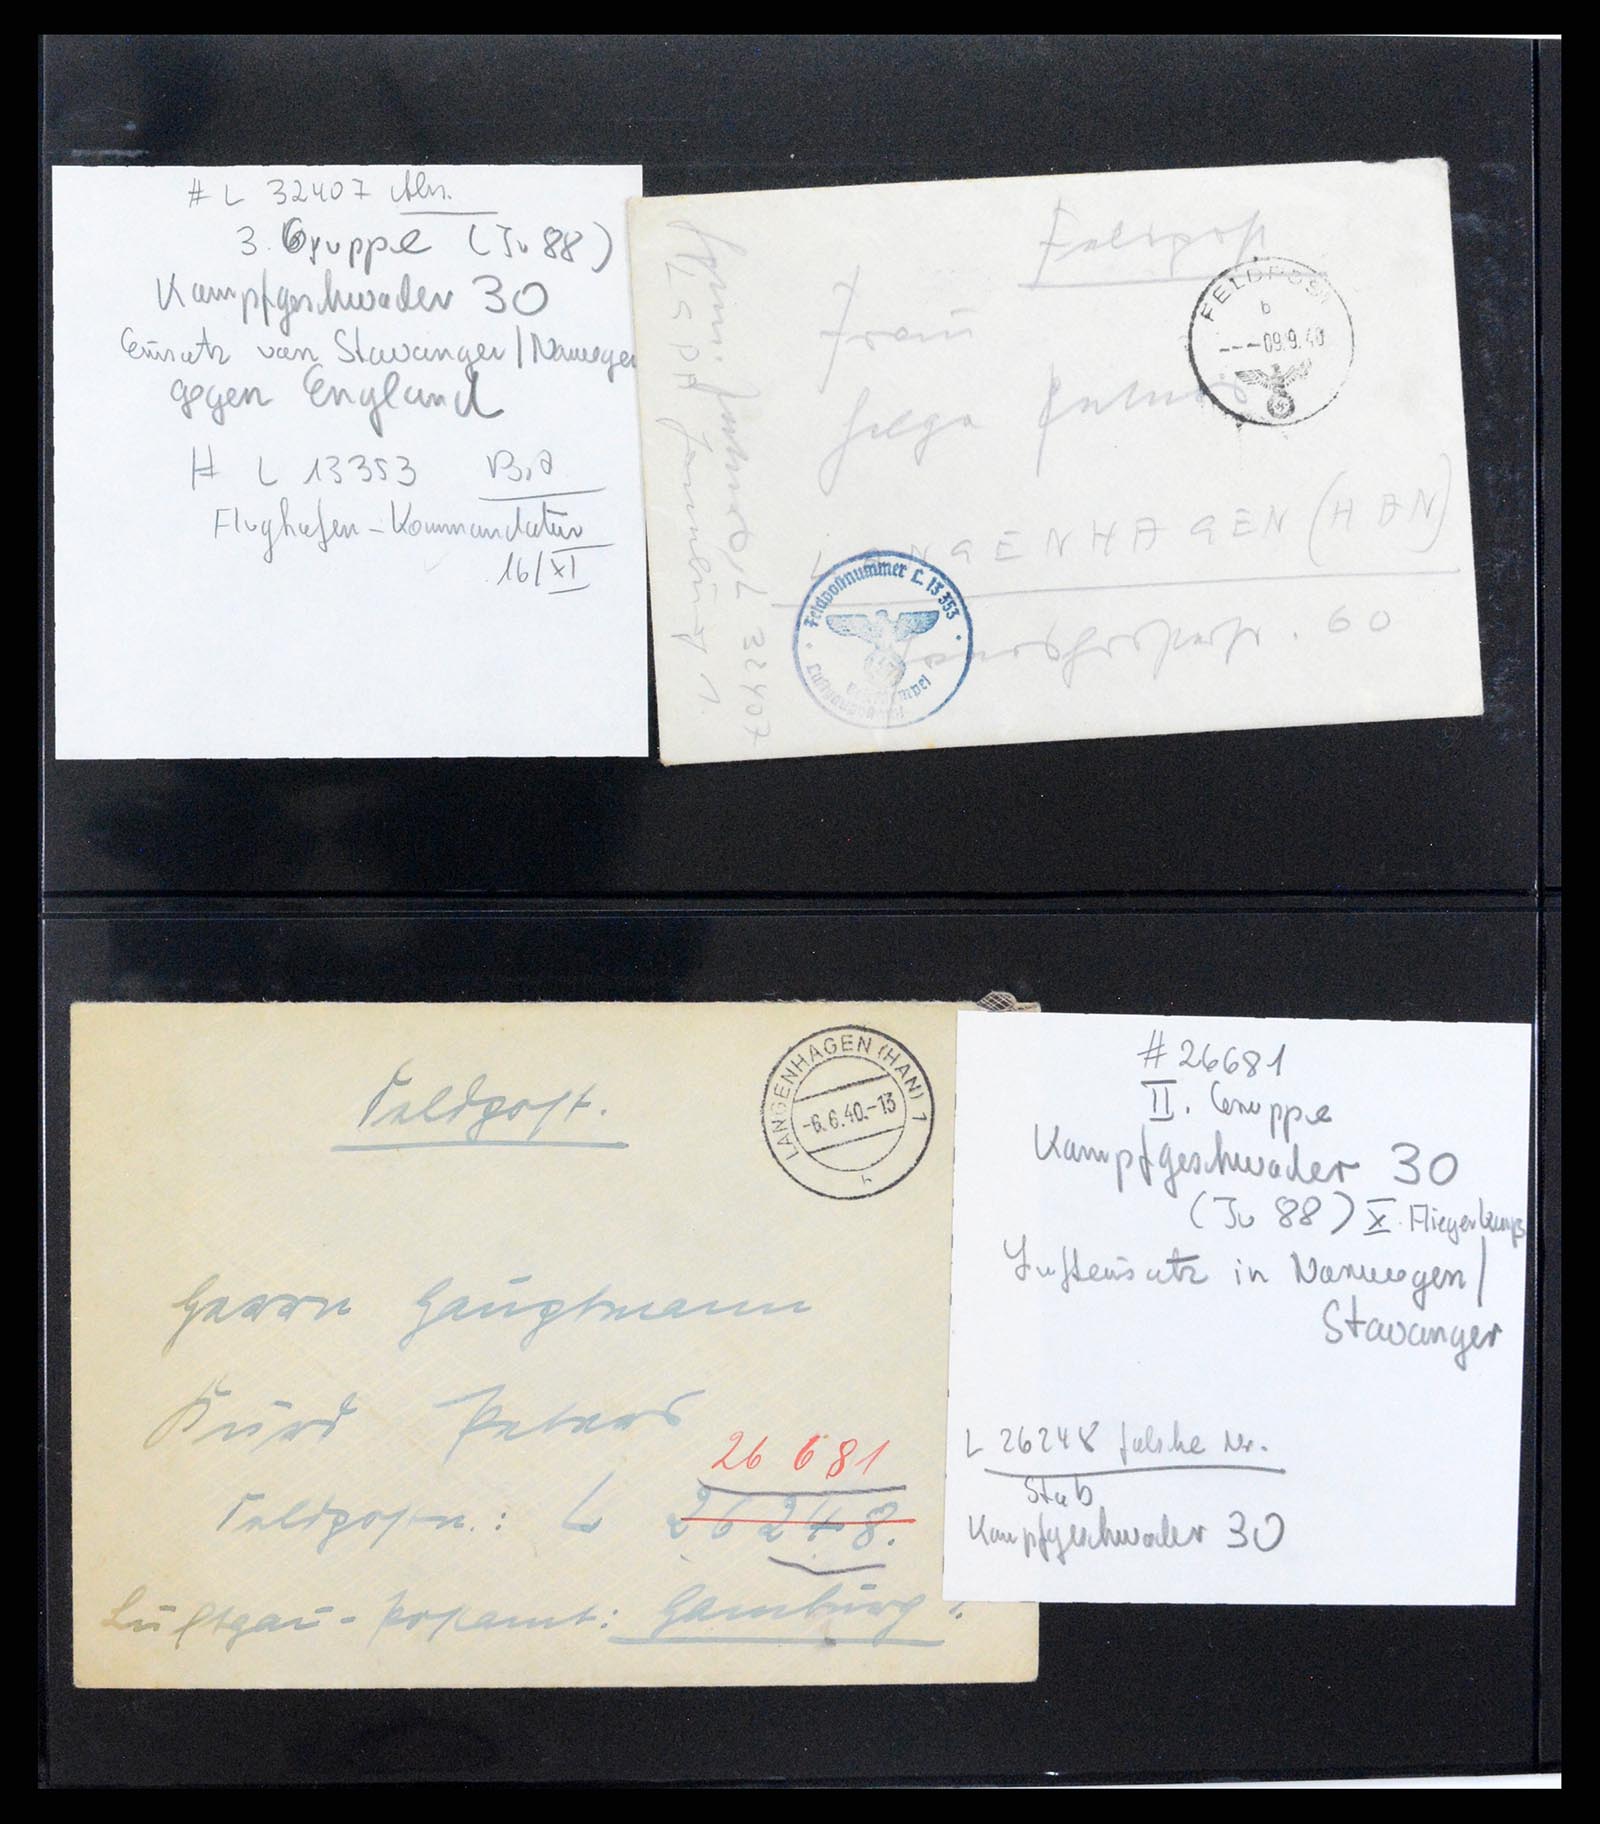 # L 32407 Abs.
3. Gruppe (Ju 88)
Kampfgeschwader 30
Einsatz von Stavanger/Norwegen
gegen England
# L 13353
Flughafen-Kommandatur
16/XI
Feldpost
FELDPOST
b
---09.9.40
Frau
Helga Peters
LANGENHAGEN (HAN)
60
Feldpostnummer L 13 353
Peters, L 32407
L G P A Hamburg 1.
Feldpost.
LANGENHAGEN (HAN) 1
-6.6.40.-13
h
Herrn Hauptmann
Kurd Peters
26 681
Feldpostn.: L 26 248.
Luftgau-Postamt: Hamburg 1.
# 26681
II. Gruppe
Kampfgeschwader 30
(Ju 88) X. Fliegerkorps
Lufteinsatz in Norwegen/
Stavanger
L 26248 falsche Nr.
Stab
Kampfgeschwader 30